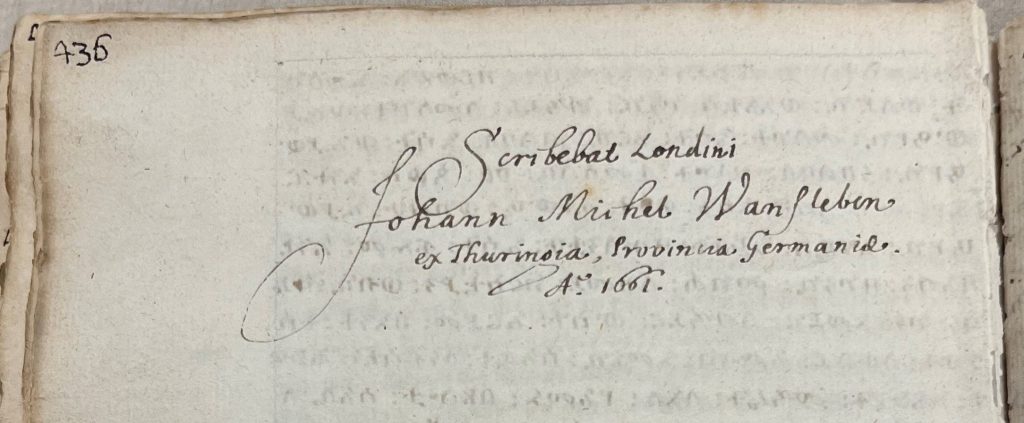 436
Scribebat Londini
Johann Michel Wansleben
ex Thuringia, Provincia Germaniæ.
Aº. 1661.